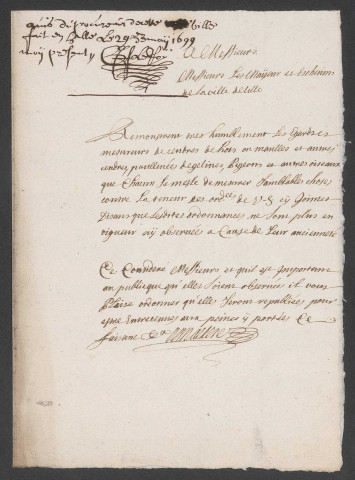 fait en halle le 29 may 1699
moy present
A Messieurs
Messieurs Les Mayeur et Eschevins
de la ville de Lille
Remonstrent tres humblement Les Gardes
mesureurs de cendres de bois en manilles et autres
cendres, de gelines, pigeons et autres oiseaux
que chacun se mesle de mesurer semblables choses
contre la teneur des ord.ces de V.S. cy jointes
disans que lesdites ordonnances ne sont plus en
vigueur ny observées a cause de Leur ancienneté
Ce Consideré Messieurs et qu'il est important
au publique qu'elles soient observées il vous
Plaise ordonner qu'elles seront republiées pour
estre Entretenues aux peines y portées Ce
faisant &a